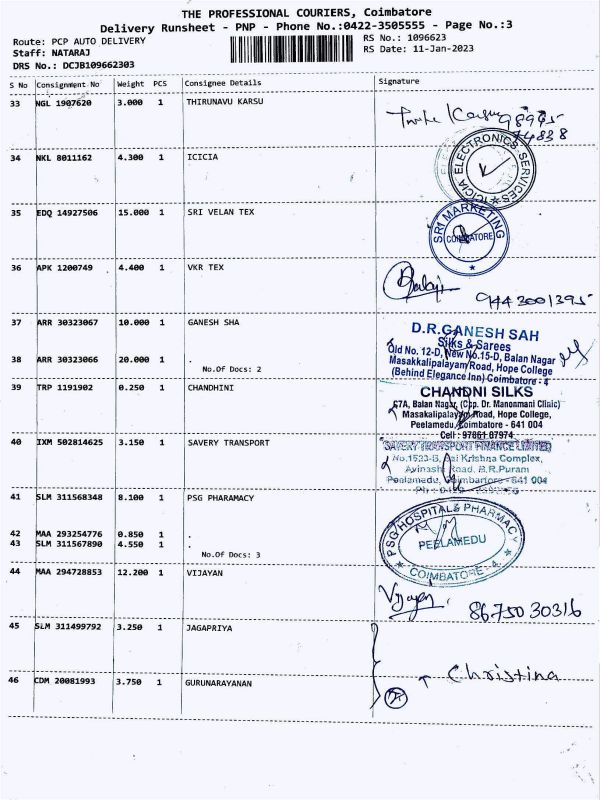 THE PROFESSIONAL COURIERS, Coimbatore
Delivery Runsheet - PNP - Phone No.:0422-3505555 - Page No.:3
Route: PCP AUTO DELIVERY
Staff: NATARAJ
DRS No.: DCJB109662303
RS No.: 1096623
RS Date: 11-Jan-2023
S No Consignment No Weight PCS Consignee Details Signature
33 NGL 1907620 3.000 1 THIRUNAVU KARSU
98945
74838
34 NKL 8011162 4.300 1 ICICIA
ICICIA ELECTRONICS SERVICES
35 EDQ 14927506 15.000 1 SRI VELAN TEX
SRI MARKETING
COIMBATORE
36 APK 1200749 4.400 1 VKR TEX
Balaji
9443001395
37 ARR 30323067 10.000 1 GANESH SHA
D.R.GANESH SAH
Silks & Sarees
Old No. 12-D, New No.15-D, Balan Nagar
Masakkalipalayam Road, Hope College
(Behind Elegance Inn) Coimbatore - 4
38 ARR 30323066 20.000 1 .
No.Of Docs: 2
39 TRP 1191902 0.250 1 CHANDHINI
CHANDNI SILKS
67A, Balan Nagar, (Opp. Dr. Manonmani Clinic)
Masakalipalayam Road, Hope College,
Peelamedu, Coimbatore - 641 004
Cell : 97861 87974
40 IXM 502814625 3.150 1 SAVERY TRANSPORT
SAVERY TRANSPORT FINANCE LIMITED
No.1523-B, Sai Krishna Complex,
Avinashi Road, B.R.Puram
Peelamedu, Coimbartore - 641 004
41 SLM 311568348 8.100 1 PSG PHARAMACY
PSG HOSPITALS PHARMACY
PEELAMEDU
COIMBATORE - 4
42 MAA 293254776 0.850 1 .
43 SLM 311567890 4.550 1 .
No.Of Docs: 3
44 MAA 294728853 12.200 1 VIJAYAN
Vijayan
8675030316
45 SLM 311499792 3.250 1 JAGAPRIYA
46 CDM 20081993 3.750 1 GURUNARAYANAN
Christina